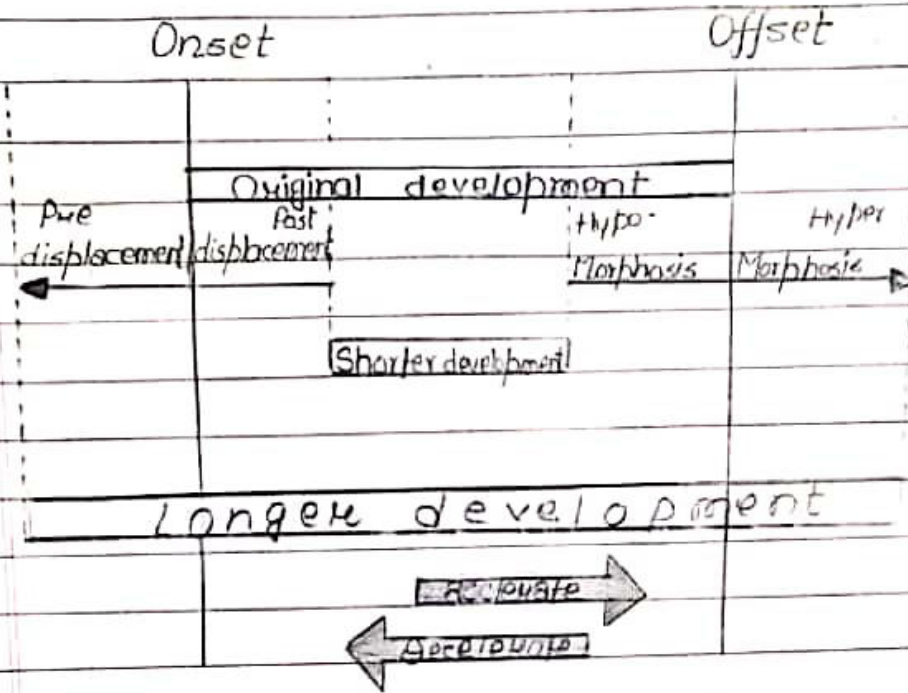 Onset Offset
Original development
Pre Post Hypo- Hyper
displacement displacement Morphosis Morphosis
Shorter development
Longer development
Accelerate
Decelerate